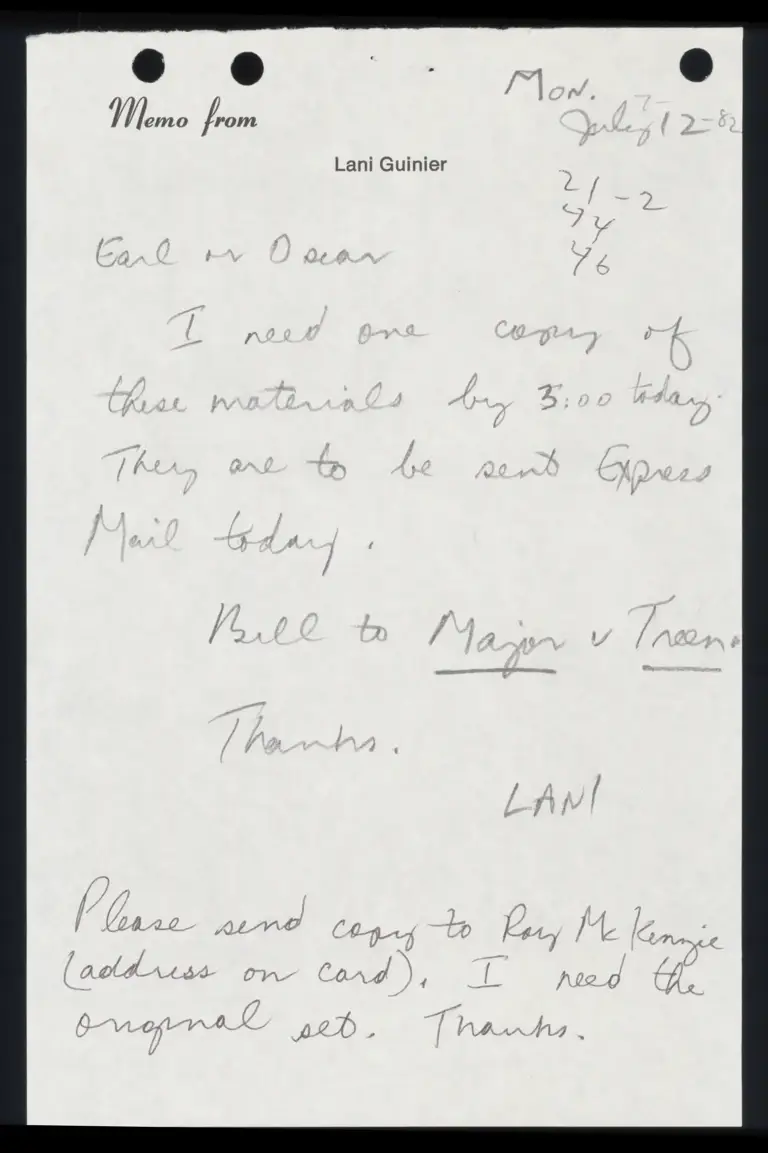 Memo from
Lani Guinier
MON.
July 12-82
21-2
44
46
Earl or Oscar
I need one copy of
these materials by 3:00 today.
They are to be sent Express
Mail today.
Bill to Major v Treen.
Thanks.
LANI
Please send copy to Roy McKenzie
(address on card). I need the
original set. Thanks.